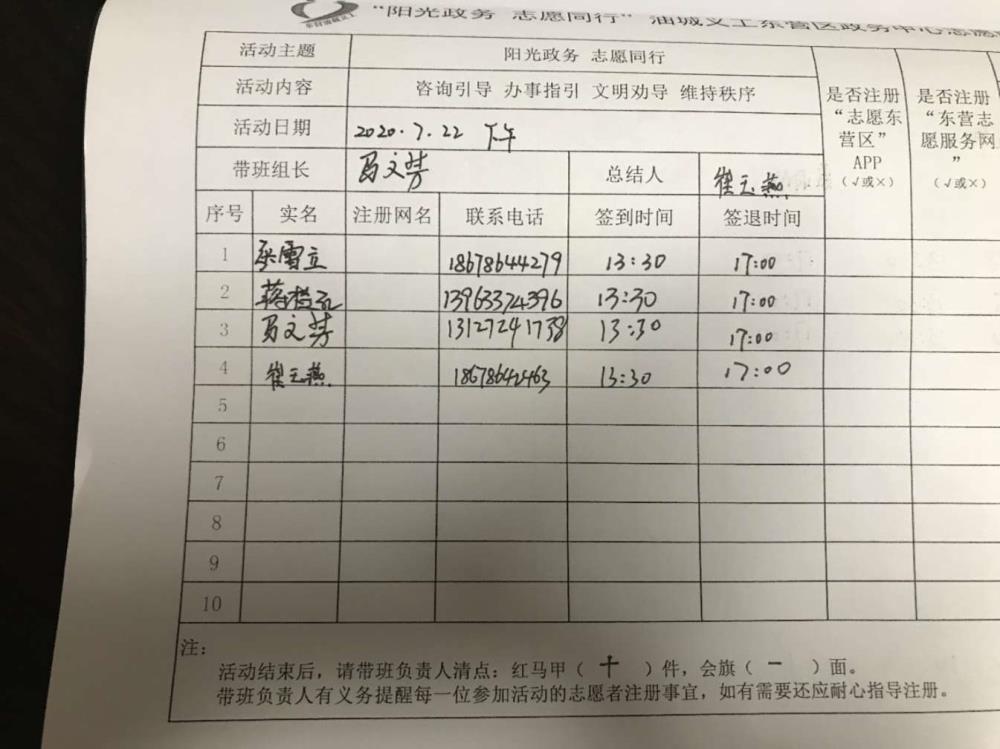 “阳光政务 志愿同行”油城义工东营区政务中心志愿
活动主题 阳光政务 志愿同行
活动内容 咨询引导 办事指引 文明劝导 维持秩序
活动日期 2020.7.22 下午
带班组长 马文芳 总结人 崔玉燕
是否注册“志愿东营区”APP（√或×）
是否注册“东营志愿服务网”（√或×）
序号 实名 注册网名 联系电话 签到时间 签退时间
1 雪立 18678644279 13:30 17:00
2 蒋 13963374396 13:30 17:00
3 马文芳 13127241738 13:30 17:00
4 崔玉燕 18678642463 13:30 17:00
5
6
7
8
9
10
注：
活动结束后，请带班负责人清点：红马甲（十）件，会旗（一）面。
带班负责人有义务提醒每一位参加活动的志愿者注册事宜，如有需要还应耐心指导注册。